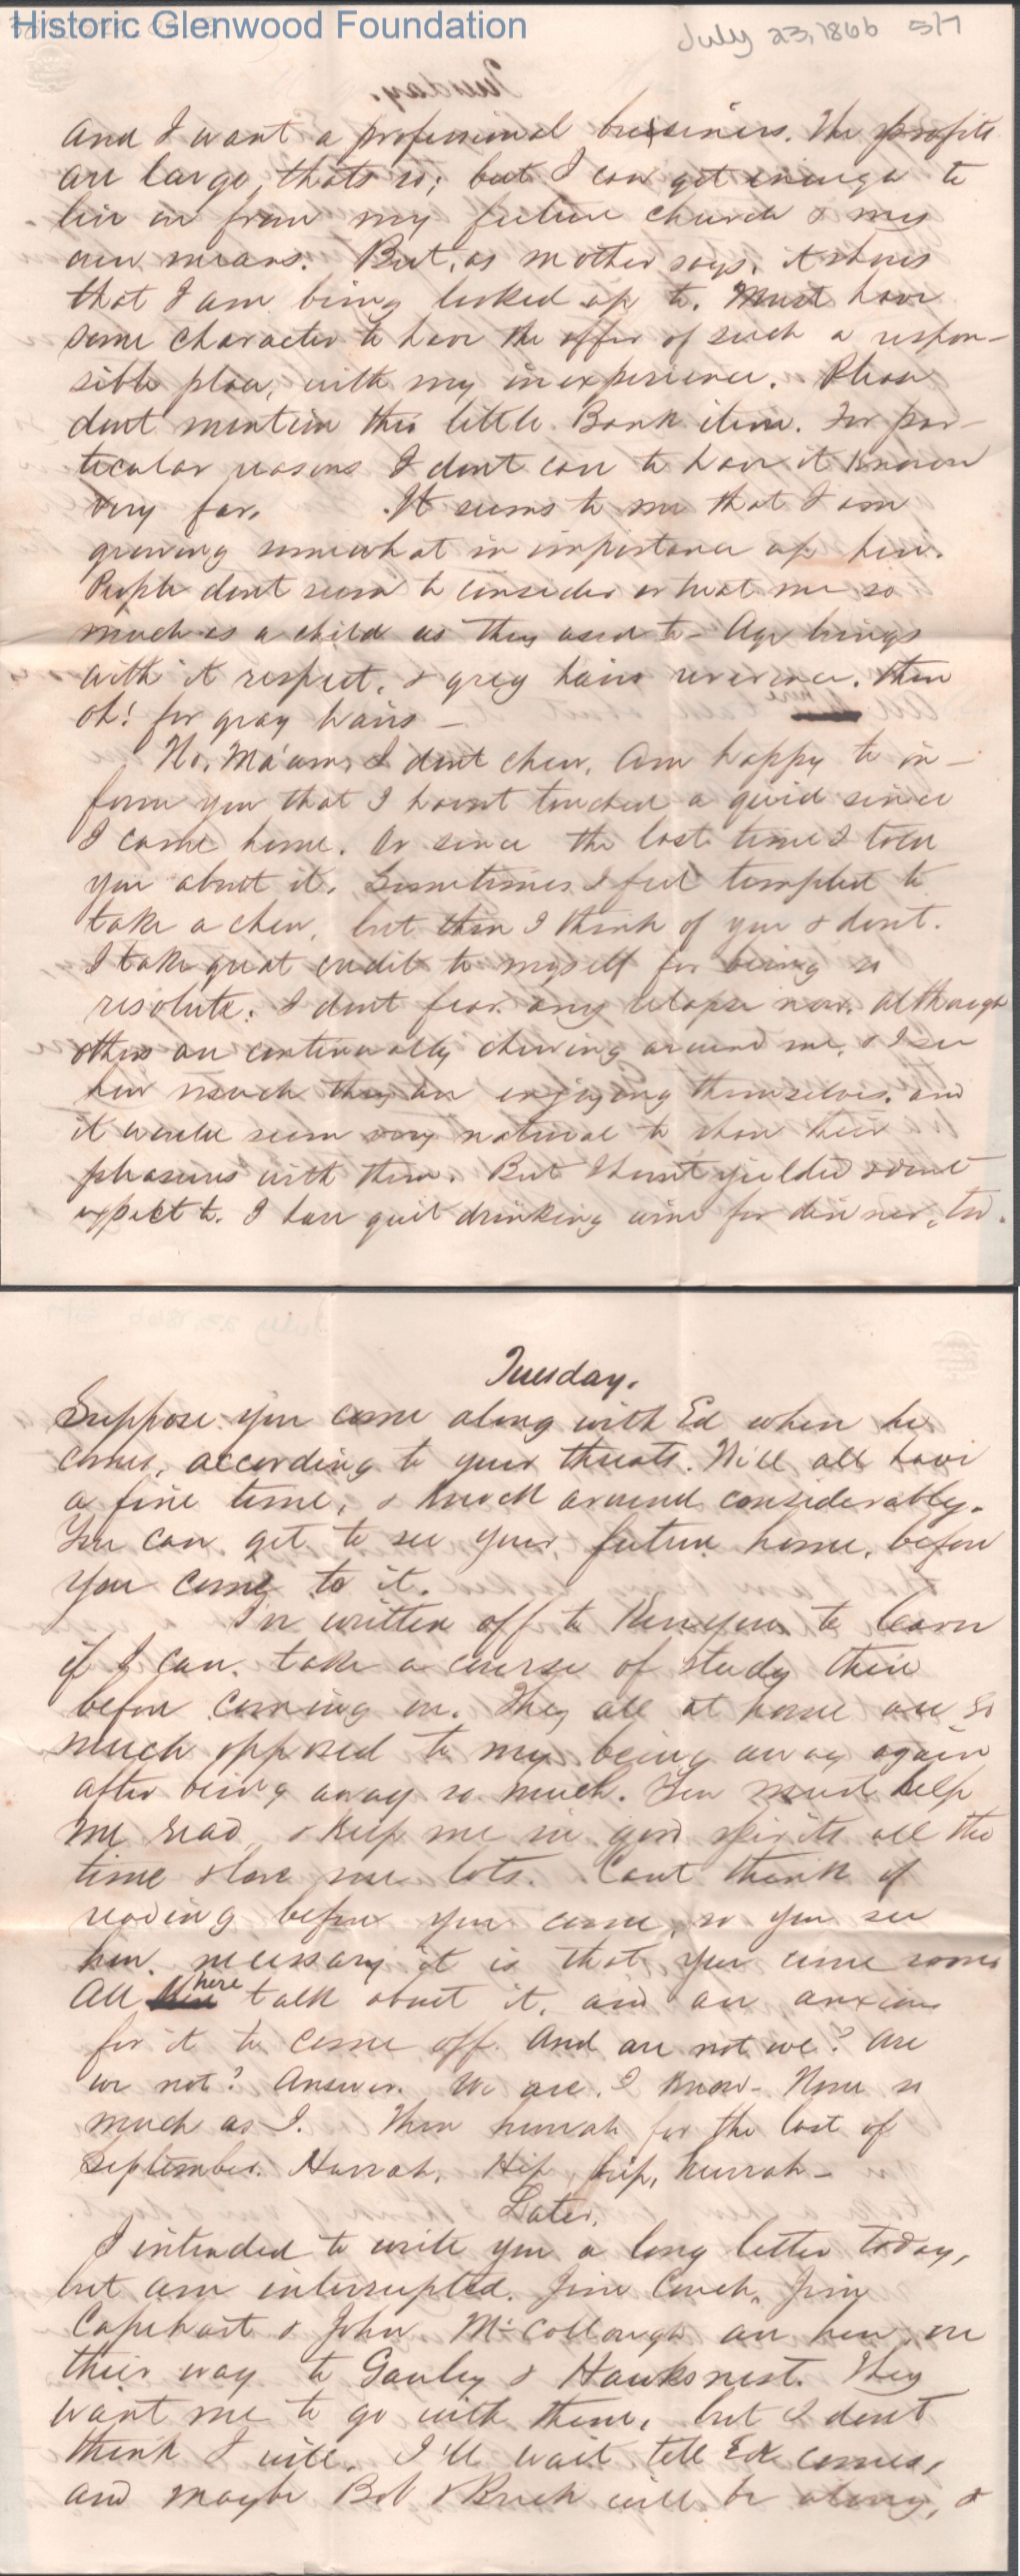 Historic Glenwood Foundation
July 23, 1866 5/7
and I want a professional business. The profits
are large, thats so; but I can get enough to
live on from my future church & my
own means. But, as mother says, it shows
that I am being looked up to. Must have
some character to have the offer of such a respon-
sible place, with my inexperience. Please
dont mention this little Bank item. For par-
ticular reasons I dont care to have it known
very far. It seems to me that I am
growing somewhat in importance up here.
People dont seem to consider or treat me so
much as a child as they used to - Age brings
with it respect, & grey hairs reverence. Then
oh! for gray hairs -
No, Ma'am, I dont chew. Am happy to in-
form you that I havnt touched a quid since
I came home. Or since the last time I told
you about it. Sometimes I feel tempted to
take a chew, but then I think of you & dont.
I take great credit to myself for being so
resolute. I dont fear any relapse now, although
others are continually chewing around me, & I see
how much they are enjoying themselves, and
it would seem very natural to share their
pleasures with them. But I havnt yielded & dont
expect to. I have quit drinking wine for dinner, too.
Tuesday.
Suppose you come along with Ed when he
comes, according to your threats. We'll all have
a fine time, & knock around considerably.
You can get to see your future home, before
you come to it.
I've written off to Kenyon to learn
if I can take a course of study there
before coming on. They all at home are so
much opposed to my being away again
after being away so much. You must help
me read, & keep me in good spirits all the
time & love me lots. Cant think of
reading before you come, so you see
how necessary it is that you come soon.
All here talk about it, and are anxious
for it to come off. And are not we? Are
we not? Answer. We are. I know - None so
much as I. Then hurrah for the last of
September. Hurrah, Hip, hip, hurrah -
Later.
I intended to write you a long letter today,
but am interrupted. Jim Couch, Jim
Capehart & John McCollough are here, on
their way to Gauley & Hawksnest. They
want me to go with them, but I dont
think I will. I'll wait till Ed comes,
and maybe Bob & Ruck will be along, &